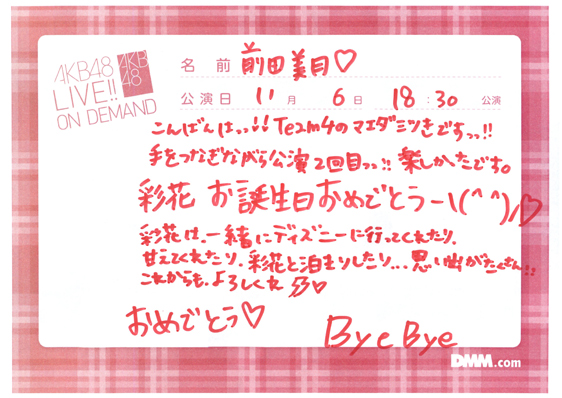 AKB48
LIVE!!
ON DEMAND
AKB
48
名前 前田美月♡
公演日 11月 6日 18:30 公演
こんばんはっっ!! Team4のマエダミツキですっっ!!
手をつなぎながら公演2回目っっ!! 楽しかたです。
彩花 お誕生日おめでとうー\(^^)/♡
彩花は、一緒にディズニーに行ってくれたり、
甘えてくれたり、彩花と泊まりしたり... 思い出がたくさん!!
これからも、よろしくね
おめでとう♡
Bye Bye
DMM.com